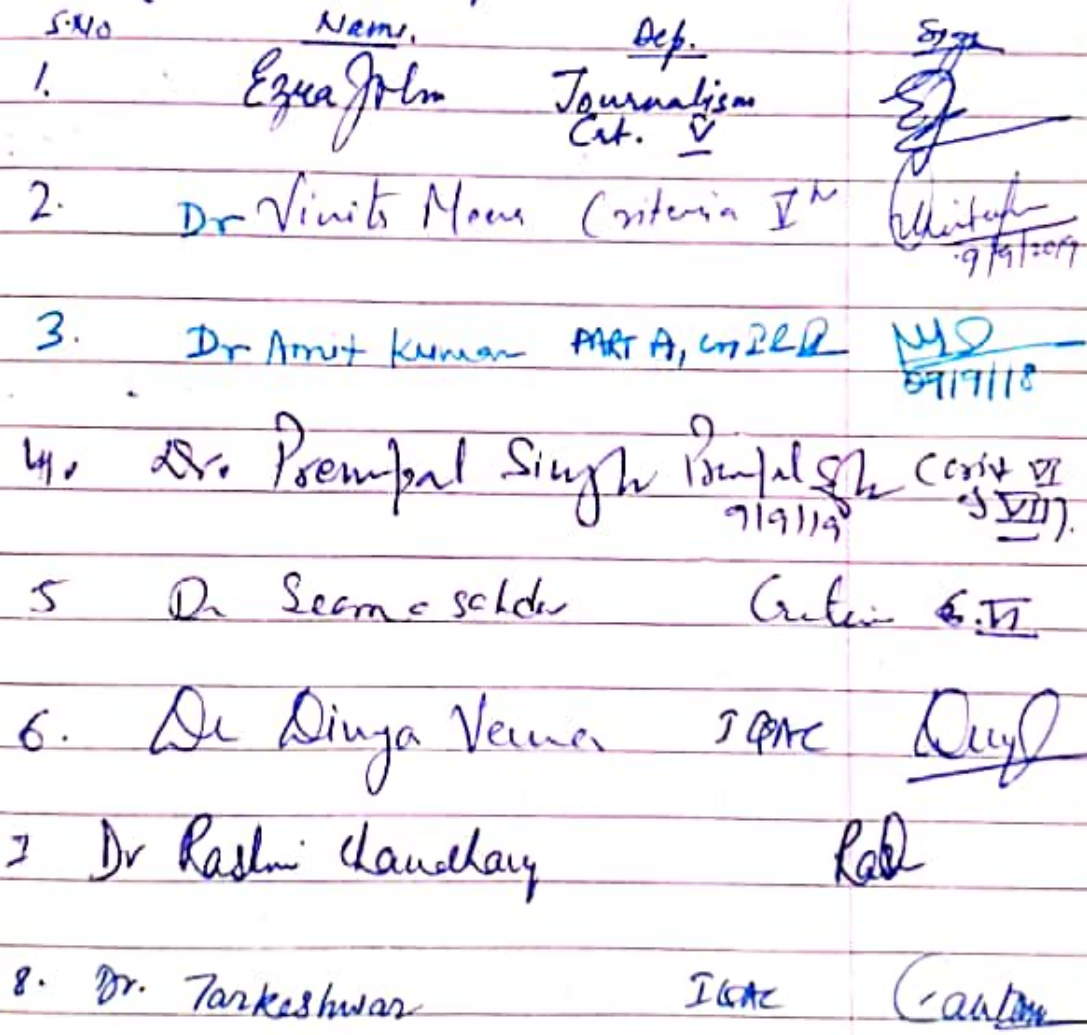 S.No Name. Dep. Sign
1. Ezra John Journalism
Crt. V
2. Dr Vinita Meena Criteria V
9/9/2019
3. Dr Amit Kumar PART A,
09/9/18
4. Dr. Prempal Singh Prempal Sgh (Crit VI
& VII).
9/9/19
5 Dr Seema Criteria 6.VI
6. Dr Divya Verma IQAC
7 Dr Rashmi Chaudhary
8. Dr. Tarkeshwar IQAC Gautam